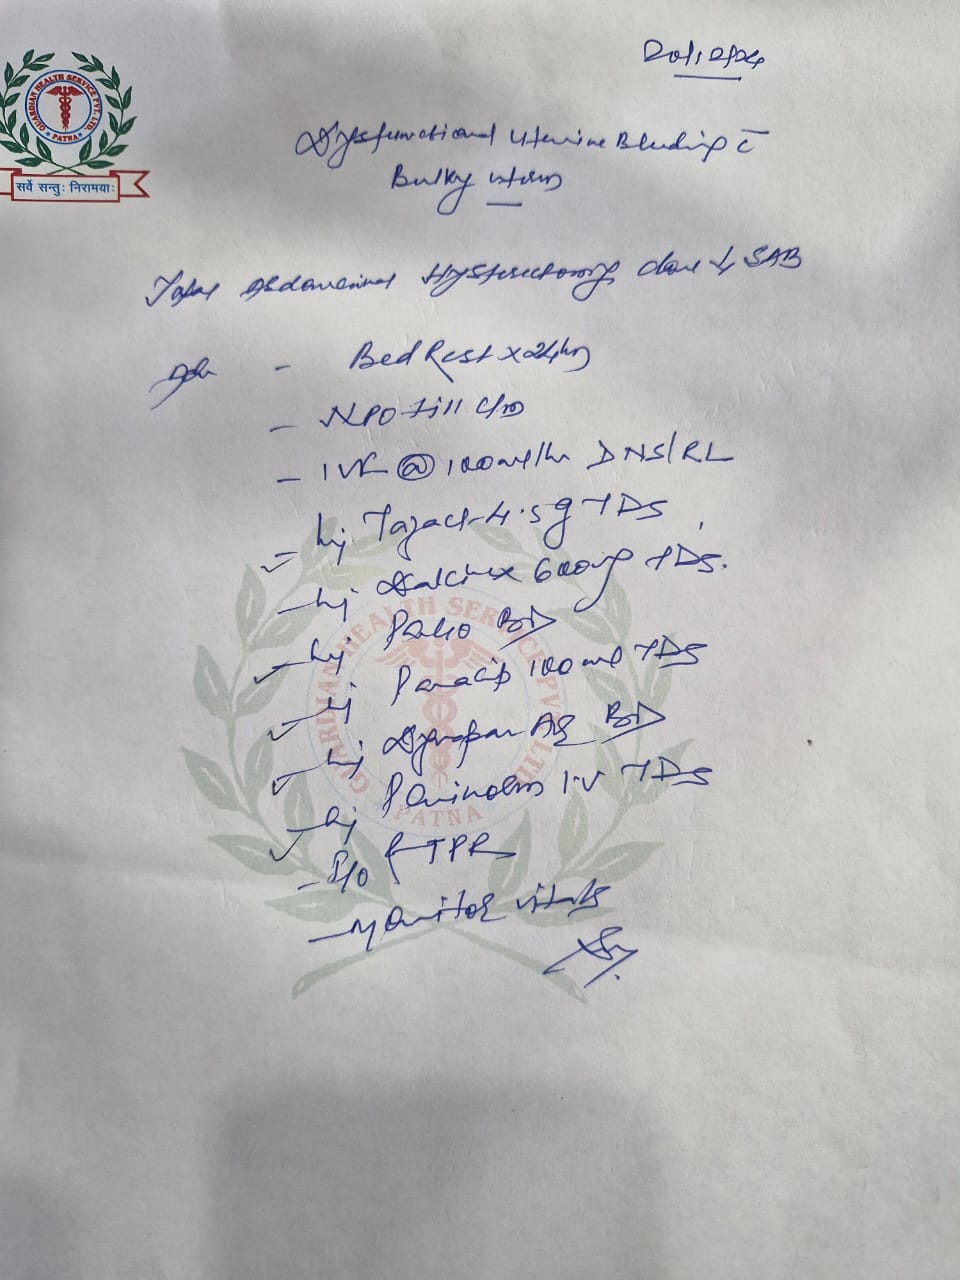 GUARDIAN HEALTH SERVICE PVT. LTD.
PATNA
सर्वे सन्तुः निरामयाः
Dysfunctional Uterine Bleeding c̄
Bulky uterus
Total Abdominal Hysterectomy done ↓ SAB
- Bed Rest x 24hrs
- NPO till
- IVF @ 100ml/hr DNS/RL
- Inj Tazact 4.5g TDS
- Inj 600mg TDS.
- Inj BD
- Inj Paracip 100ml TDS
- Inj Dynapar AQ BD
- Inj I.V TDS
- TPR
- Monitor vitals
GUARDIAN HEALTH SERVICE PVT. LTD.
PATNA